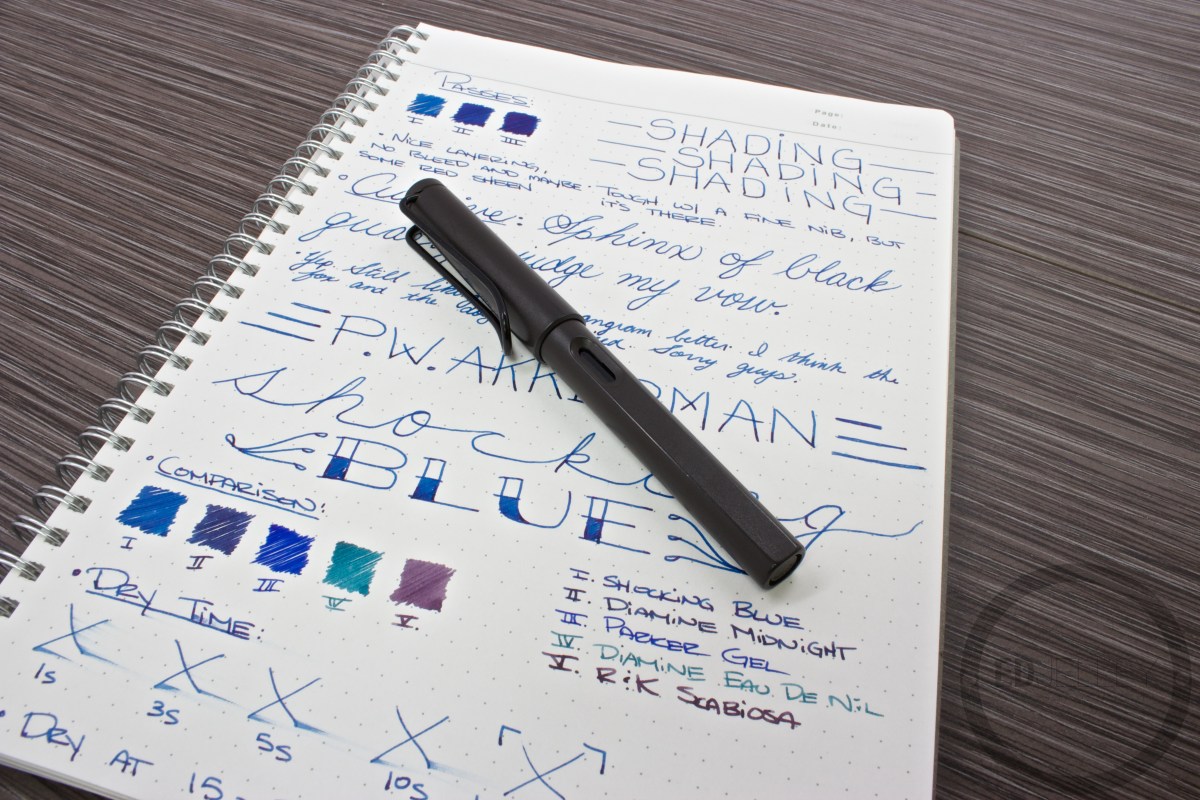 Page:
Date:
PASSES:
I II III
• NICE LAYERING,
NO BLEED AND MAYBE
SOME RED SHEEN
—SHADING—
—SHADING—
—SHADING—
• TOUGH W/ A FINE NIB, BUT
IT'S THERE.
• : Sphinx of black
judge my vow.
• Yep still better. I think the
fox and the Sorry guys.
P.W. AKKERMAN
shocking
BLUE
• COMPARISON:
I II III IV V.
I. SHOCKING BLUE
II. DIAMINE MIDNIGHT
III. PARKER GEL
IV. DIAMINE EAU DE NIL
V. R&K SCABIOSA
• DRY TIME:
X X X X X
1s 3s 5s 10s
• DRY AT 15